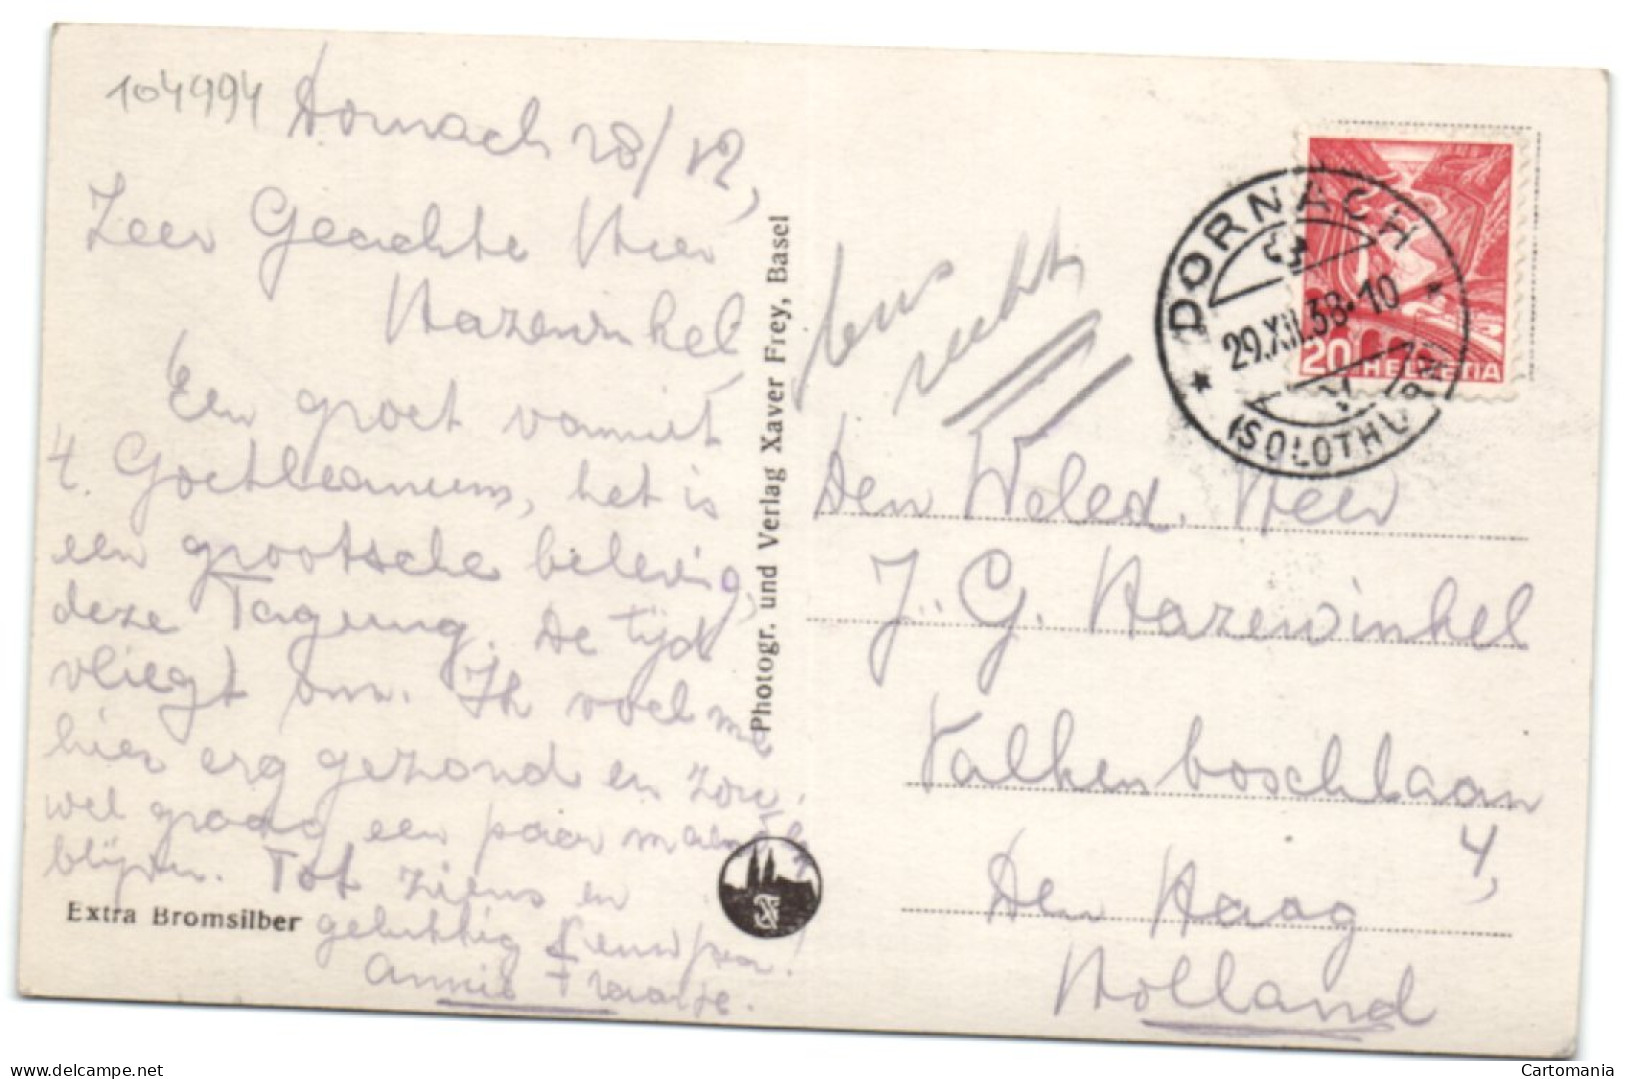 104994
Dornach 28/12,
Zeer Geachte Heer
Hazewinkel,
Een groet vanuit
't Goetheanum, het is
een grootsche beleving,
deze Tagung. De tijd
vliegt om. Ik voel me
hier erg gezond en zou
wel graag een paar maanden
blijven. Tot ziens en
gelukkig Nieuwjaar!
Annie
Extra Bromsilber
Photogr. und Verlag Xaver Frey, Basel
DORNACH
29.XII.38-10
(SOLOTHURN)
20 HELVETIA
Den Weled. Heer
J. G. Hazewinkel
Valkenboschlaan
4,
Den Haag
Holland
delcampe.net
Cartomania